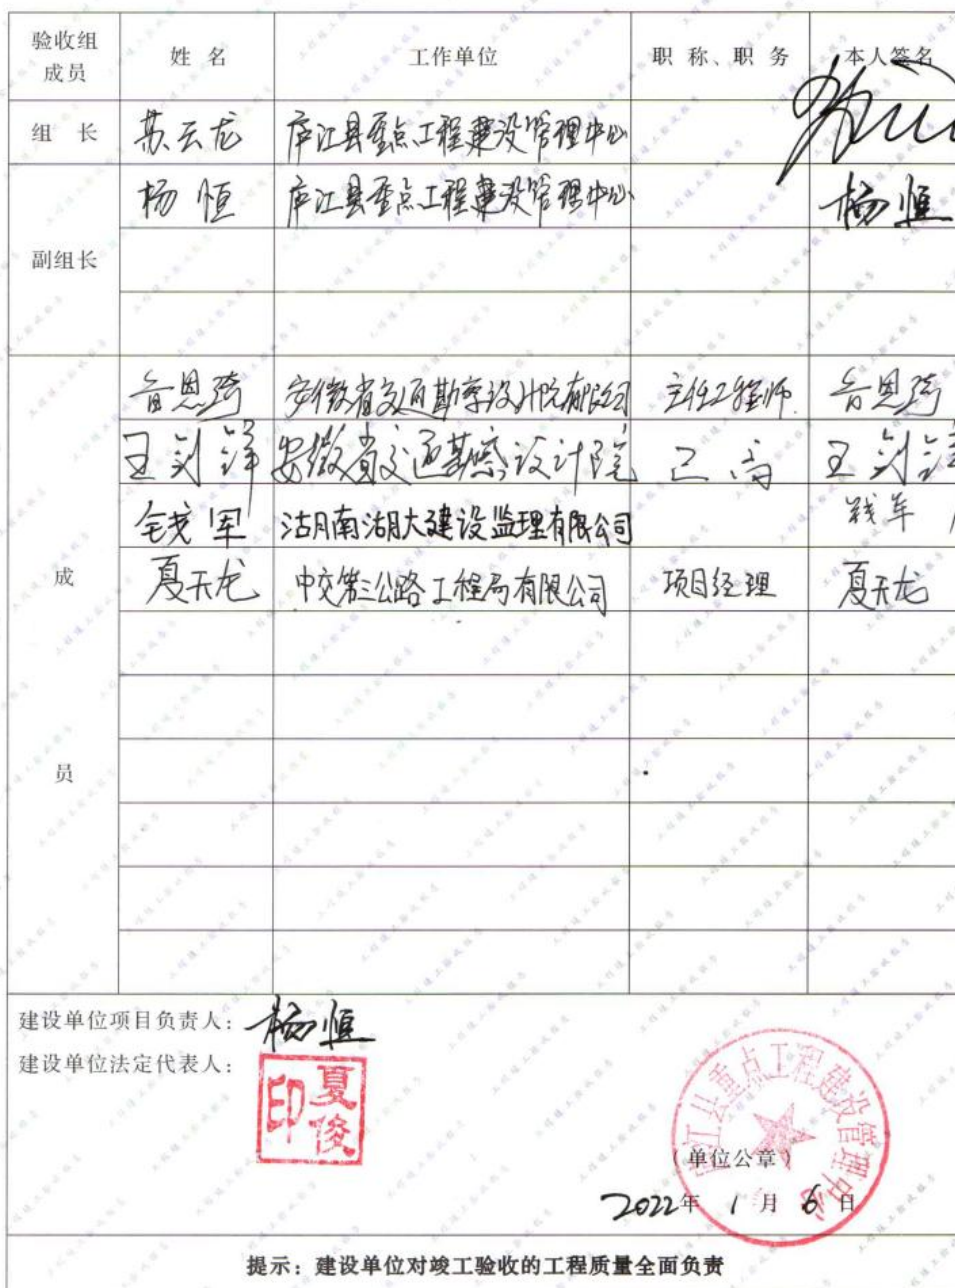 验收组成员 姓 名 工作单位 职 称、职 务 本人签名
组 长 苏云龙 庐江县重点工程建设管理中心
副组长 杨恒 庐江县重点工程建设管理中心 杨恒
成 员
鲁恩琦 安徽省交通勘察设计院有限公司 主任工程师 鲁恩琦
王剑锋 安徽省交通勘察设计院 正高 王剑锋
钱军 湖南湖大建设监理有限公司 钱军
夏天龙 中交第三公路工程局有限公司 项目经理 夏天龙
建设单位项目负责人: 杨恒
建设单位法定代表人: 夏俊印
庐江县重点工程建设管理中心
(单位公章)
2022年 1月 6日
提示:建设单位对竣工验收的工程质量全面负责